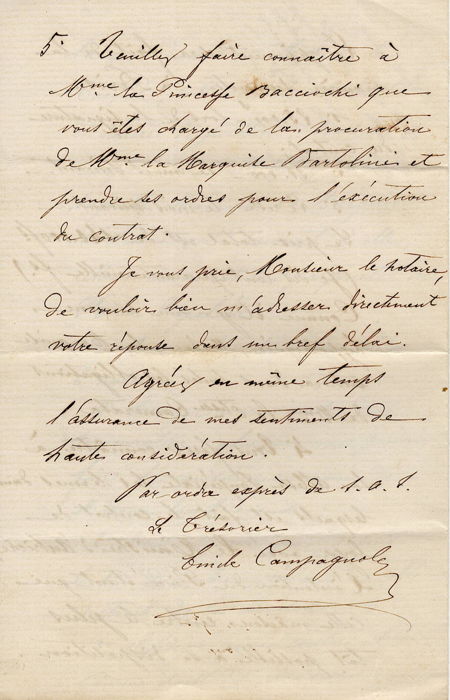 5° Veuillez faire connaître à
Mme la Princesse Bacciochi que
vous êtes chargé de la procuration
de Mme la Marquise Bartolini et
prendre ses ordres pour l'exécution
du contrat.
Je vous prie, Monsieur le notaire,
de vouloir bien m'adresser directement
votre réponse dans un bref délai.
Agréez en même temps
l'assurance de mes sentiments de
haute considération.
Par ordre exprès de S. A. S.
Le Trésorier
Emile Campagnole